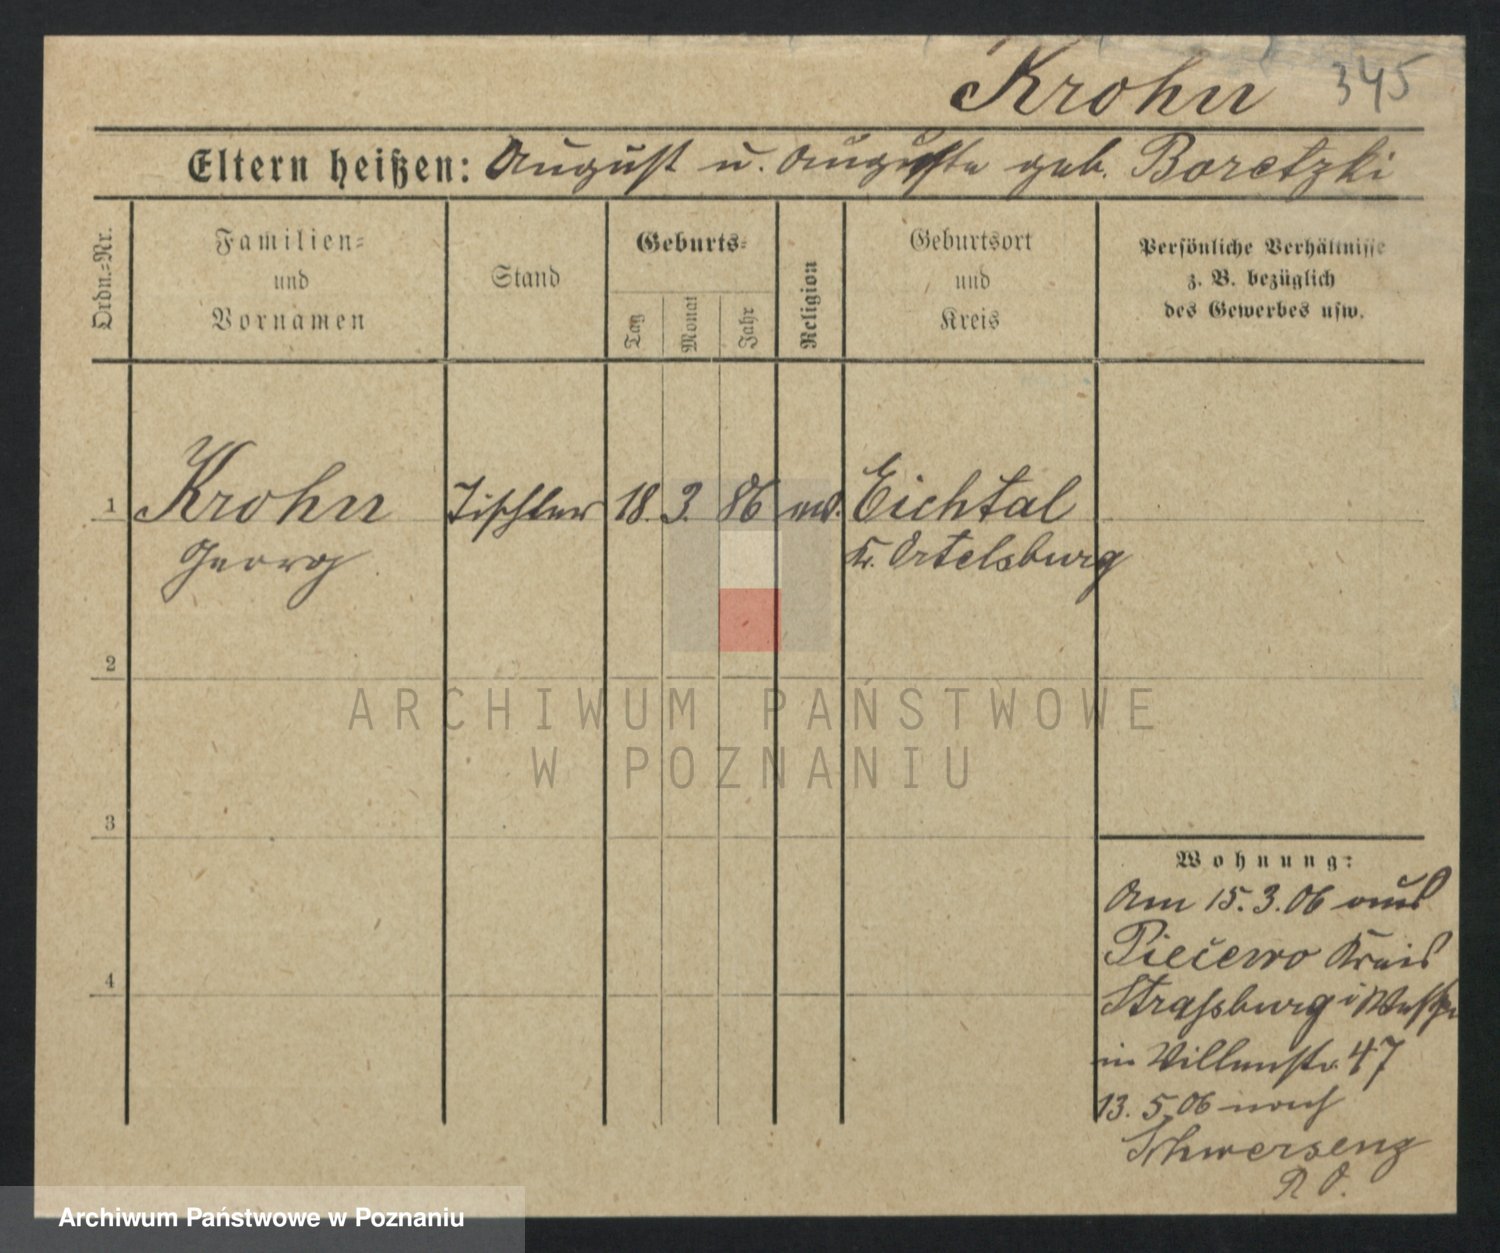 Krohn 345
Eltern heißen: August u. Auguste geb. Boretzki
Ordn.=Nr.
Familien=
und
Vornamen
Stand
Geburts=
Tag
Monat
Jahr
Religion
Geburtsort
und
Kreis
Persönliche Verhältnisse
z. B. bezüglich
des Gewerbes usw.
1 Krohn Tischler 18. 3. 86 Eichtal
Georg Kr. Ortelsburg
2
ARCHIWUM PAŃSTWOWE
W POZNANIU
3
Wohnung:
Am 15.3.06 aus
Piecewo Kreis
4
Strassburg i Westpr
in Villenstr. 47
13. 5. 06 nach
Schwersenz
Archiwum Państwowe w Poznaniu